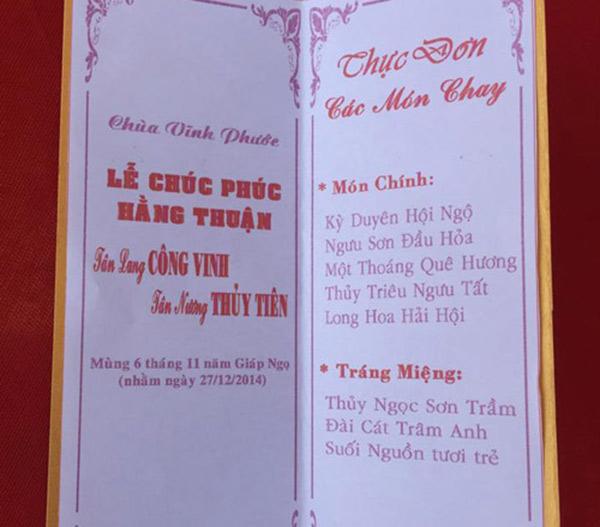 Chùa Vĩnh Phước
LỄ CHÚC PHÚC
HẰNG THUẬN
Tân Lang CÔNG VINH
Tân Nương THỦY TIÊN
Mùng 6 tháng 11 năm Giáp Ngọ
(nhằm ngày 27/12/2014)
Thực Đơn
Các Món Chay
* Món Chính:
Kỳ Duyên Hội Ngộ
Ngưu Sơn Đầu Hỏa
Một Thoáng Quê Hương
Thủy Triêu Ngưu Tất
Long Hoa Hải Hội
* Tráng Miệng:
Thủy Ngọc Sơn Trầm
Đài Cát Trâm Anh
Suối Nguồn tươi trẻ